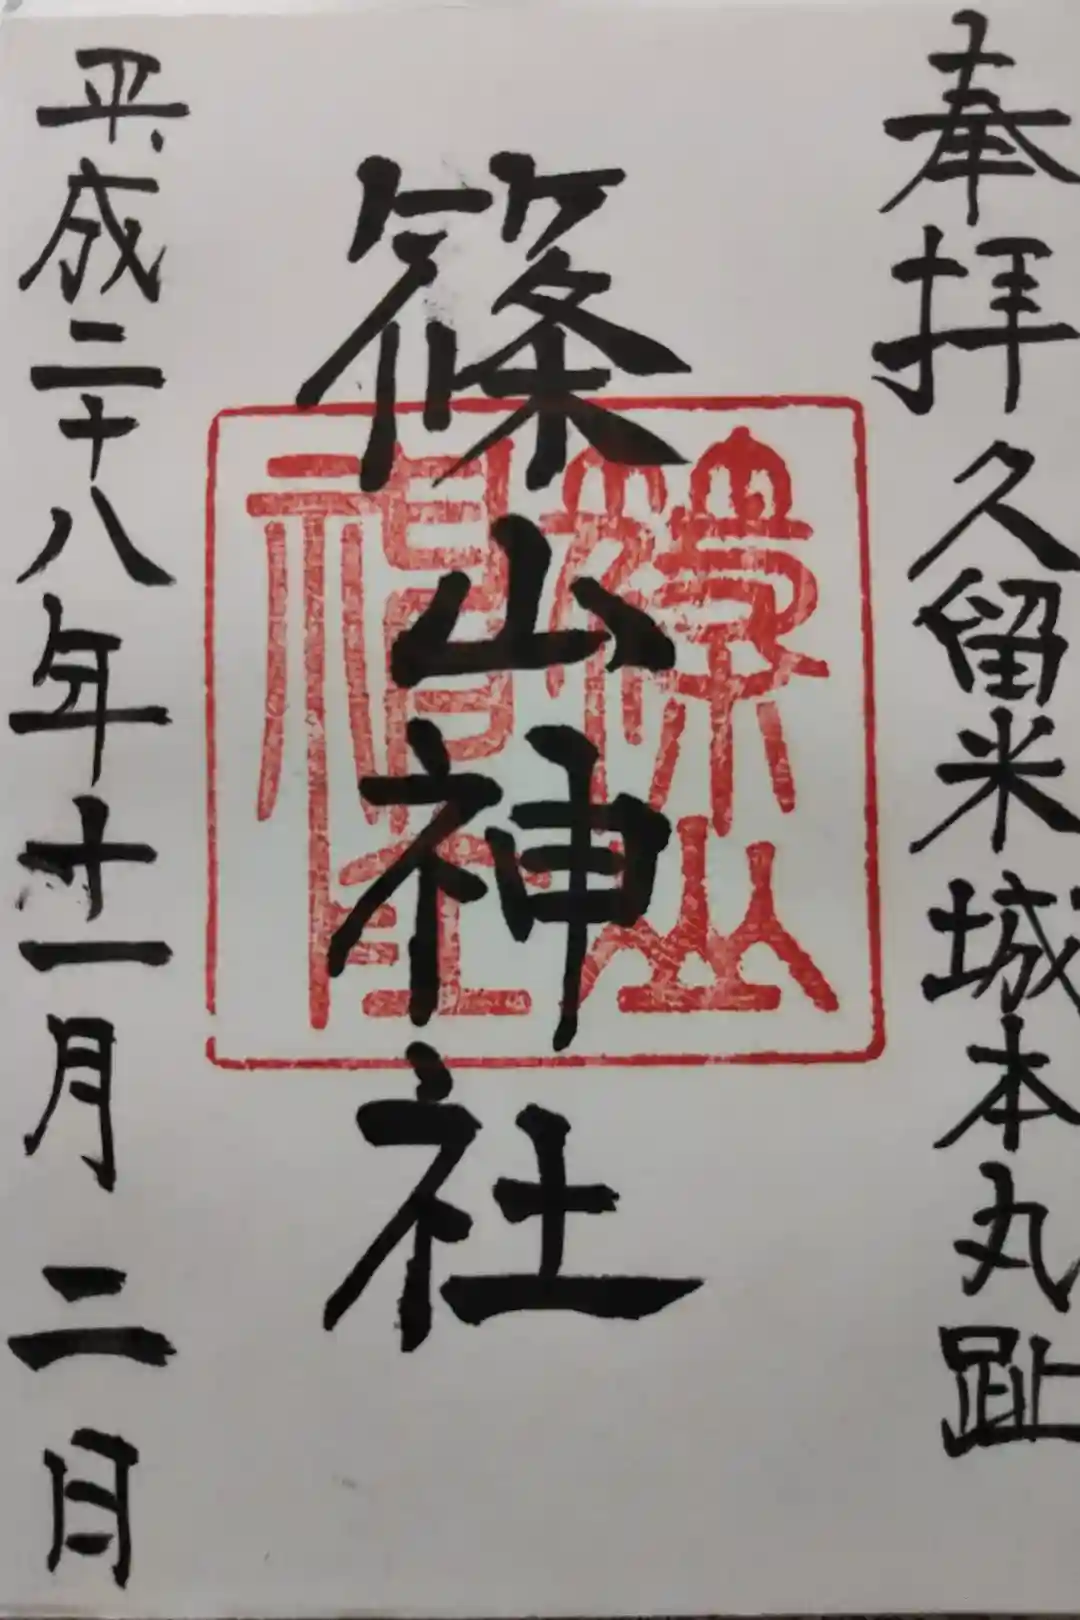 奉拝 久留米城本丸趾
篠山神社
平成二十八年十一月二日